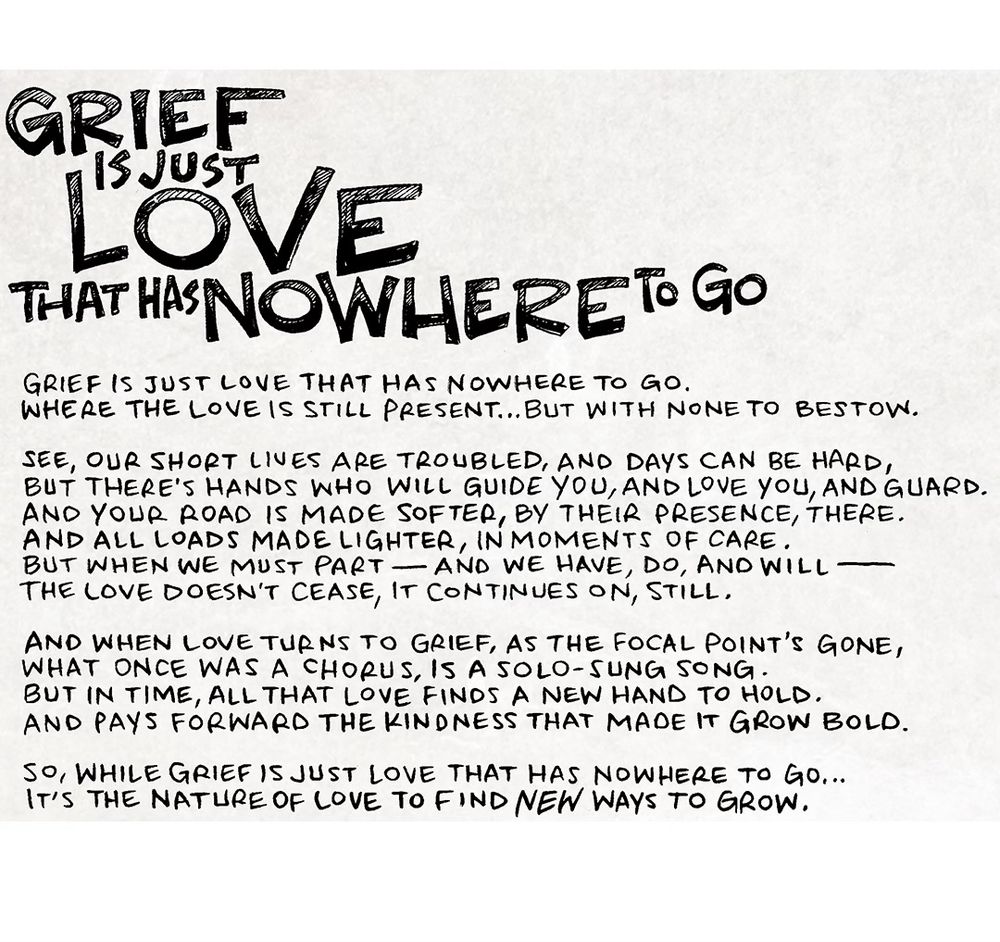 GRIEF
IS JUST
LOVE
THAT HAS NOWHERE TO GO
GRIEF IS JUST LOVE THAT HAS NOWHERE TO GO.
WHERE THE LOVE IS STILL PRESENT...BUT WITH NONE TO BESTOW.
SEE, OUR SHORT LIVES ARE TROUBLED, AND DAYS CAN BE HARD,
BUT THERE'S HANDS WHO WILL GUIDE YOU, AND LOVE YOU, AND GUARD.
AND YOUR ROAD IS MADE SOFTER, BY THEIR PRESENCE, THERE.
AND ALL LOADS MADE LIGHTER, IN MOMENTS OF CARE.
BUT WHEN WE MUST PART — AND WE HAVE, DO, AND WILL —
THE LOVE DOESN'T CEASE, IT CONTINUES ON, STILL.
AND WHEN LOVE TURNS TO GRIEF, AS THE FOCAL POINT'S GONE,
WHAT ONCE WAS A CHORUS, IS A SOLO-SUNG SONG.
BUT IN TIME, ALL THAT LOVE FINDS A NEW HAND TO HOLD.
AND PAYS FORWARD THE KINDNESS THAT MADE IT GROW BOLD.
SO, WHILE GRIEF IS JUST LOVE THAT HAS NOWHERE TO GO...
IT'S THE NATURE OF LOVE TO FIND NEW WAYS TO GROW.